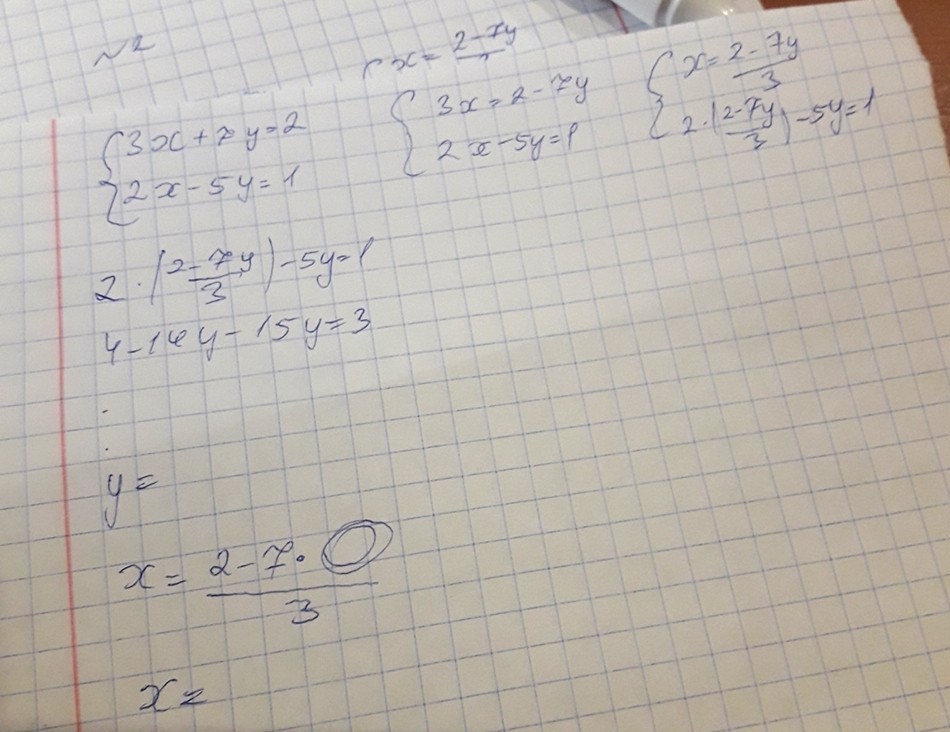 №2
{ x = 2-7y
{ 3x+7y=2
{ 2x-5y=1
{ 3x=2-7y
{ 2x-5y=1
{ x=\frac{2-7y}{3}
{ 2·(\frac{2-7y}{3})-5y=1
2·(\frac{2-7y}{3})-5y=1
4-14y-15y=3
.
.
y=
x=\frac{2-7·◯}{3}
x=